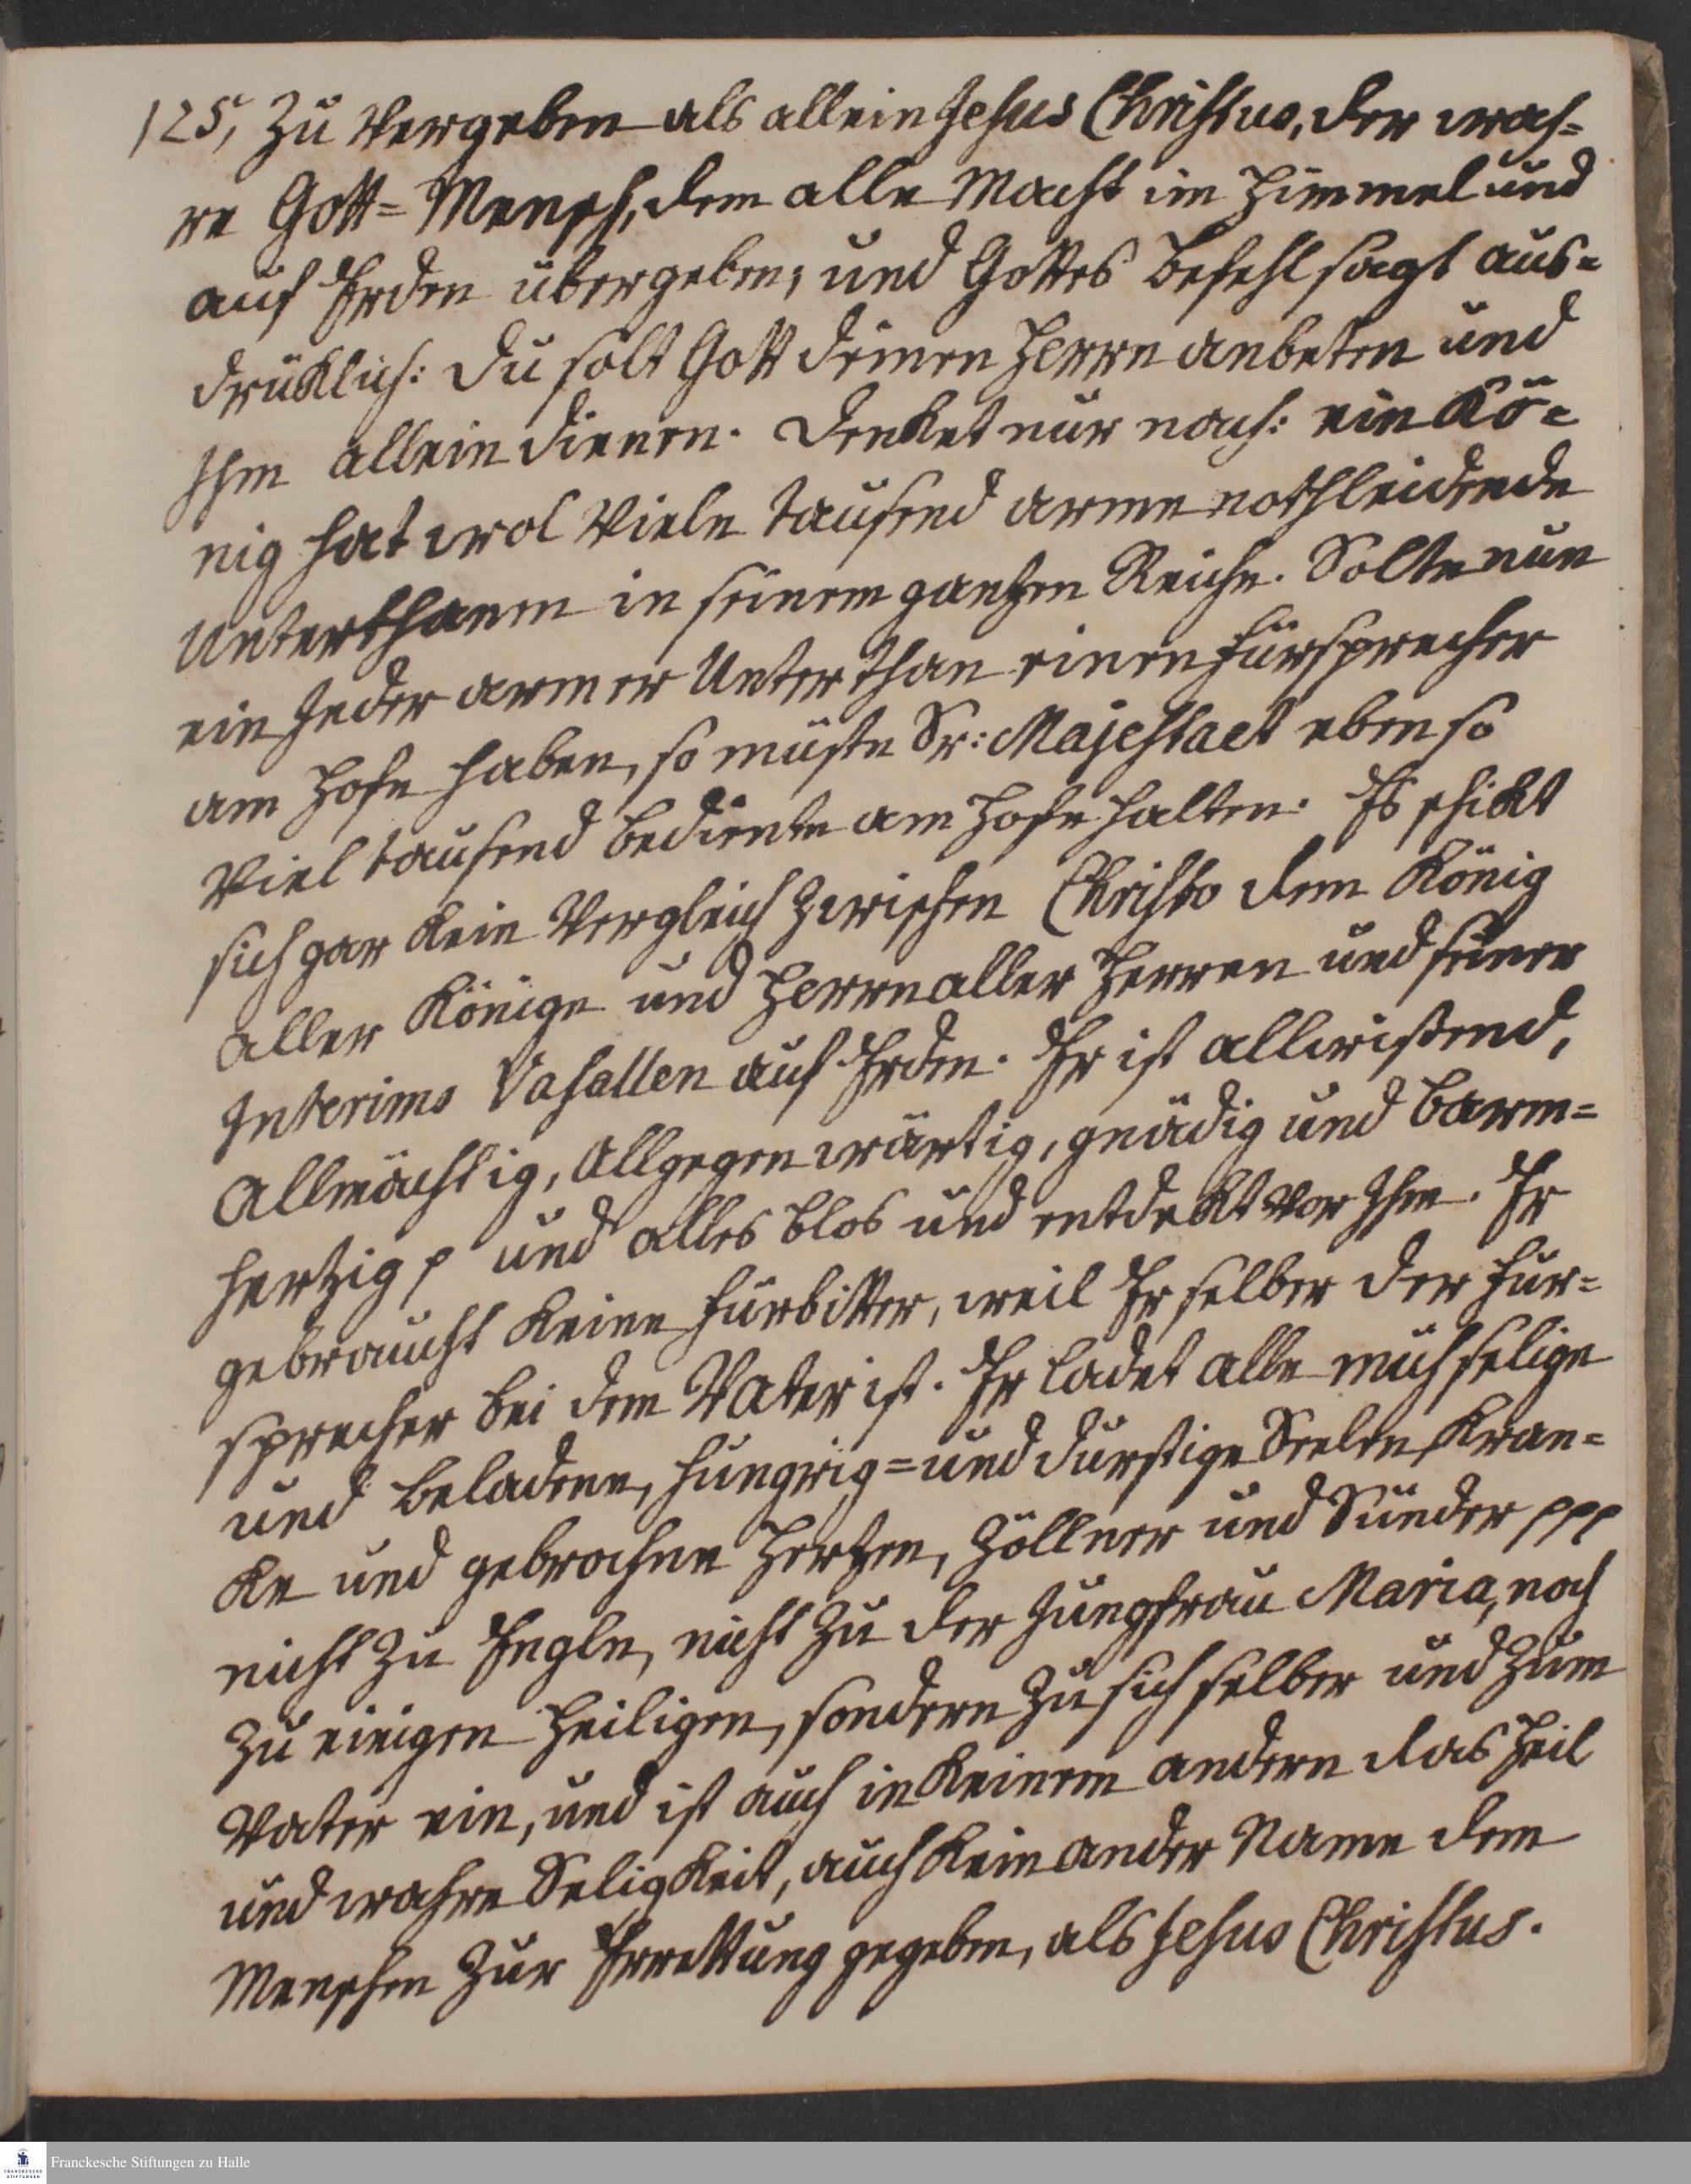 125, Zu vergeben als allein Jesus Christus, der wah=
re Gott=Mensch, dem alle Macht im Himmel und
auf Erden übergeben; und Gottes Befehl sagt aus=
drüklich: Du solt Gott deinen Herrn anbeten und
Ihm allein dienen. Denket nur nach: ein Kö=
nig hat wol viele tausend arme nothleidende
Unterthanen in seinem gantzen Reiche. Solte nun
ein Jeder armer Unterthan einen Fürsprecher
am Hofe haben, so müste Sr: Majestaet eben so
viel tausend Bediente am Hofe halten. Es schikt
sich gar kein Vergleich zwischen Christo dem König
aller Könige und Herrn aller Herren und seiner
Interims Vasallen auf Erden. Er ist allwißend,
Allmächtig, Allgegenwärtig, gnädig und barm=
hertzig p und alles blos und entdekt vor Ihm. Er
gebraucht keine Fürbitter, weil Er selber der Für=
sprecher bei dem Vater ist. Er ladet alle mühselige
und beladene, hungrig= und durstige Seelen, kran=
ke und gebrochne Hertzen, Zöllner und Sünder ppp
nicht zu Engln, nicht zu der Jungfrau Maria, noch
zu einigen Heiligen, sondern zu sich selber und zum
Vater ein, und ist auch in keinem andern das Heil
und wahre Seligkeit, auch kein ander Name dem
Menschen zur Errettung gegeben, als Jesus Christus.
FRANCKESCHE STIFTUNGEN
Franckesche Stiftungen zu Halle